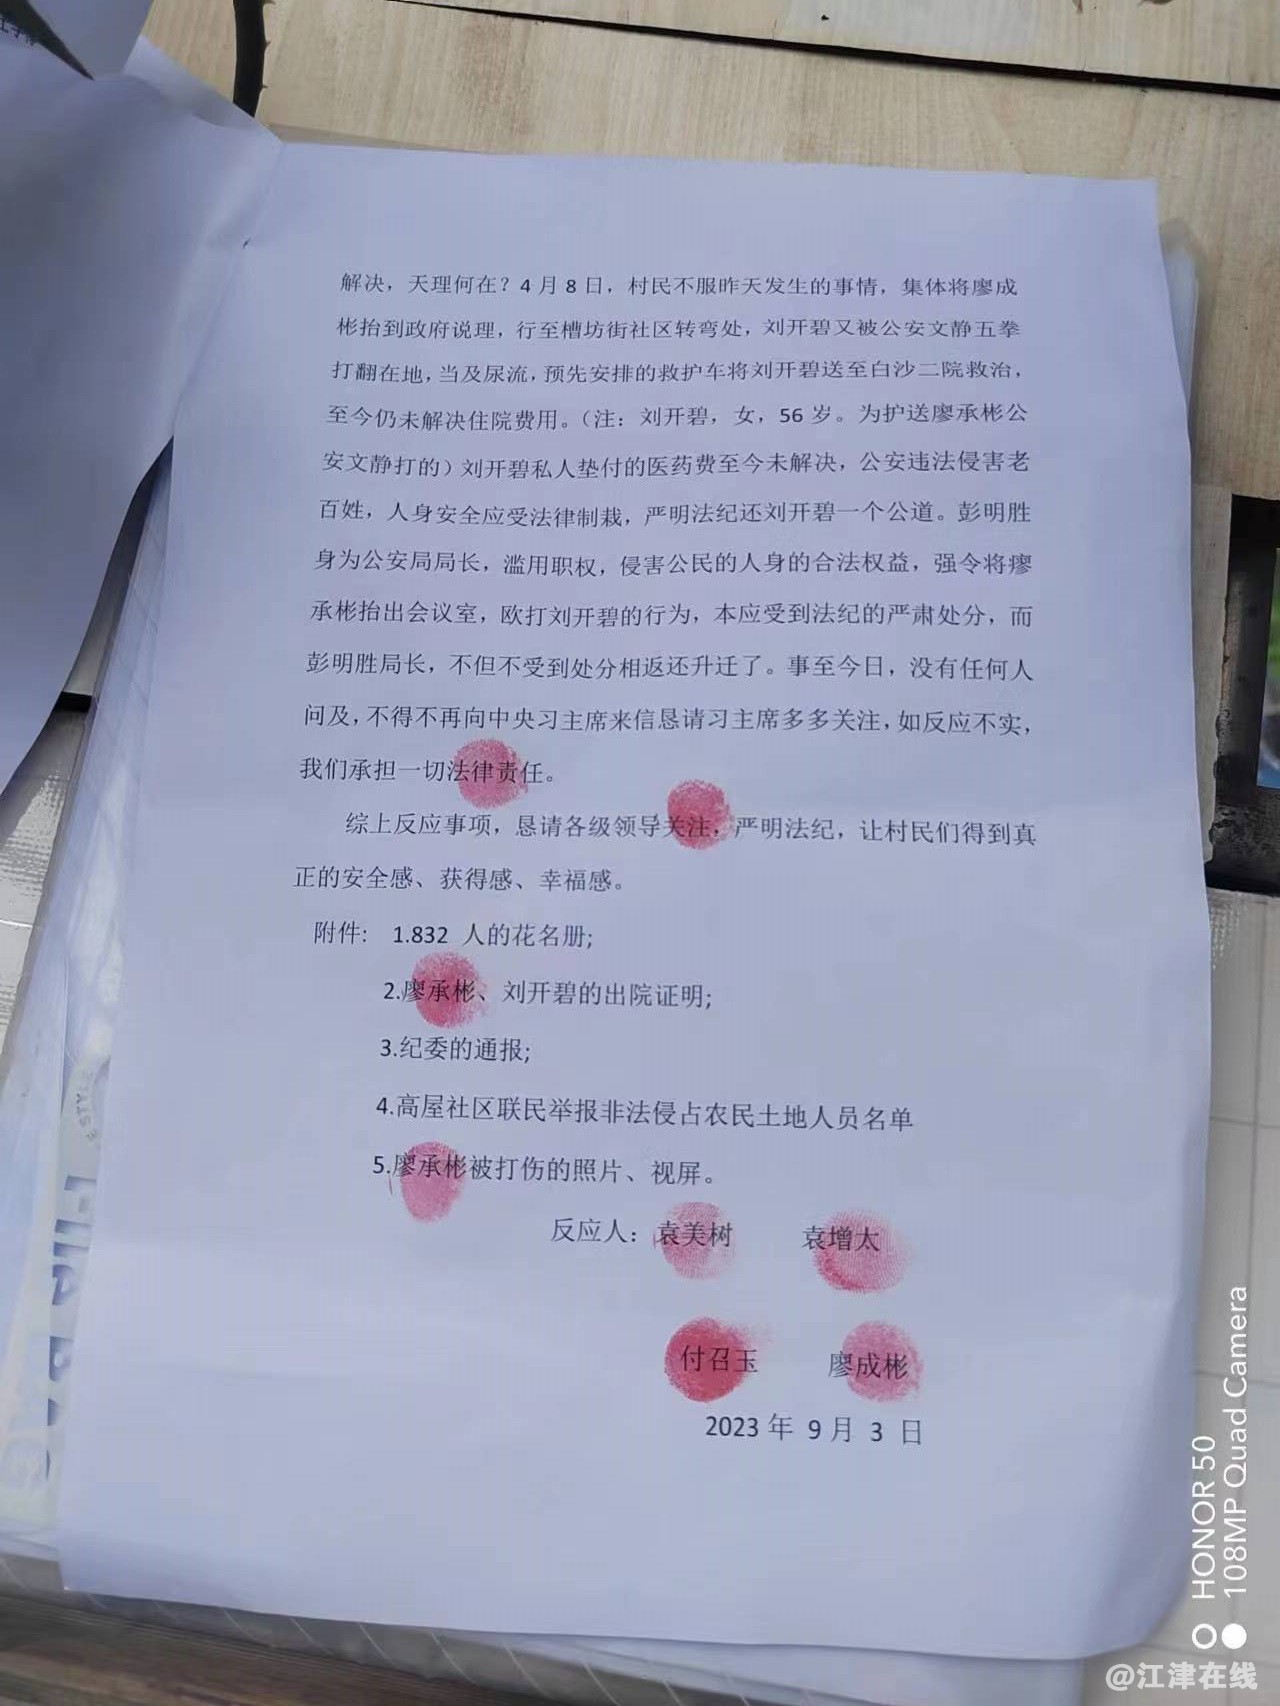 解决，天理何在？4月8日，村民不服昨天发生的事情，集体将廖成
彬抬到政府说理，行至槽坊街社区转弯处，刘开碧又被公安文静五拳
打翻在地，当及尿流，预先安排的救护车将刘开碧送至白沙二院救治，
至今仍未解决住院费用。（注：刘开碧，女，56岁。为护送廖承彬公
安文静打的）刘开碧私人垫付的医药费至今未解决，公安违法侵害老
百姓，人身安全应受法律制裁，严明法纪还刘开碧一个公道。彭明胜
身为公安局局长，滥用职权，侵害公民的人身的合法权益，强令将瘳
承彬抬出会议室，欧打刘开碧的行为，本应受到法纪的严肃处分，而
彭明胜局长，不但不受到处分相返还升迁了。事至今日，没有任何人
问及，不得不再向中央习主席来信恳请习主席多多关注，如反应不实，
我们承担一切法律责任。
综上反应事项，恳请各级领导关注，严明法纪，让村民们得到真
正的安全感、获得感、幸福感。
附件： 1.832 人的花名册;
2.廖承彬、刘开碧的出院证明;
3.纪委的通报;
4.高屋社区联民举报非法侵占农民土地人员名单
5.廖承彬被打伤的照片、视屏。
反应人：袁美树 袁增太
付召玉 廖成彬
2023 年 9 月 3 日
HONOR 50
108MP Quad Camera
@江津在线